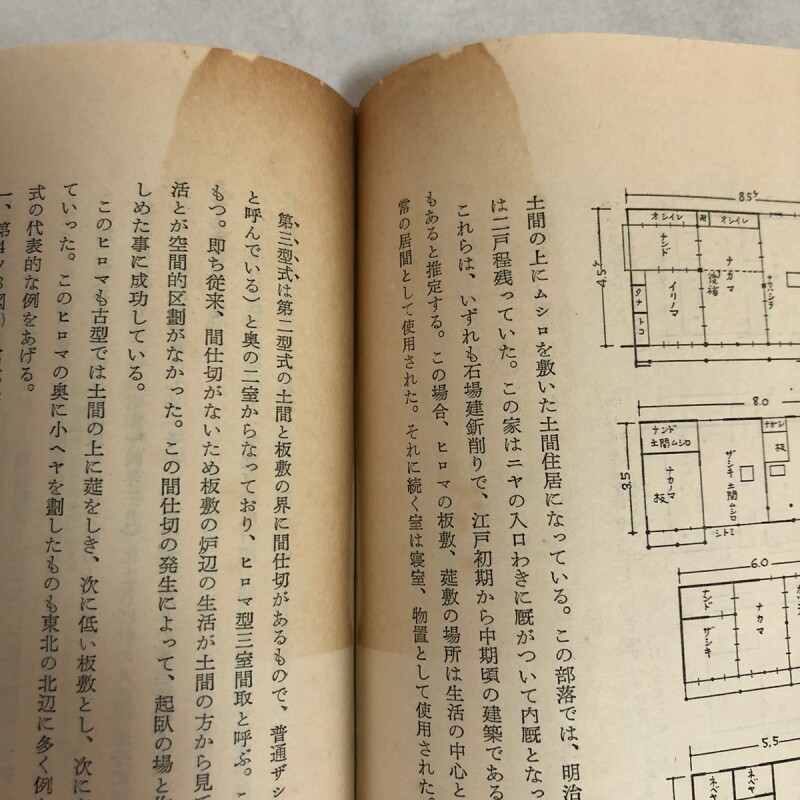 8.5ケ
オシイレ
オシイレ
ナンド
ナカマ
イリノマ
タナ
トコ
ナカバシラ
4.5ケ
8.0
ナンド
土間ムシロ
ナカノマ
板
ザシキ
土間ムシロ
板
シトミ
3.5
6.0
ナンド
ザシキ
ナカマ
5.5
ネベヤ
ネベヤ
土間の上にムシロを敷いた土間住居になっている。この部落では、明治
は二戸程残っていた。この家はニヤの入口わきに厩がついて内厩となっ
これらは、いずれも石場建釿削りで、江戸初期から中期頃の建築である
もあると推定する。この場合、ヒロマの板敷、莚敷の場所は生活の中心と
常の居間として使用された。それに続く室は寝室、物置として使用された。
第三型式は第二型式の土間と板敷の界に間仕切があるもので、普通ザシ
と呼んでいる）と奥の二室からなっており、ヒロマ型三室間取と呼ぶ。こ
もつ。即ち従来、間仕切がないため板敷の炉辺の生活が土間の方から見
活とが空間的区劃がなかった。この間仕切の発生によって、起臥の場と
しめた事に成功している。
このヒロマも古型では土間の上に莚をしき、次に低い板敷とし、次に
ていった。このヒロマの奥に小ヘヤを劃したものも東北の北辺に多く例
式の代表的な例をあげる。
一、第4ッ8図）